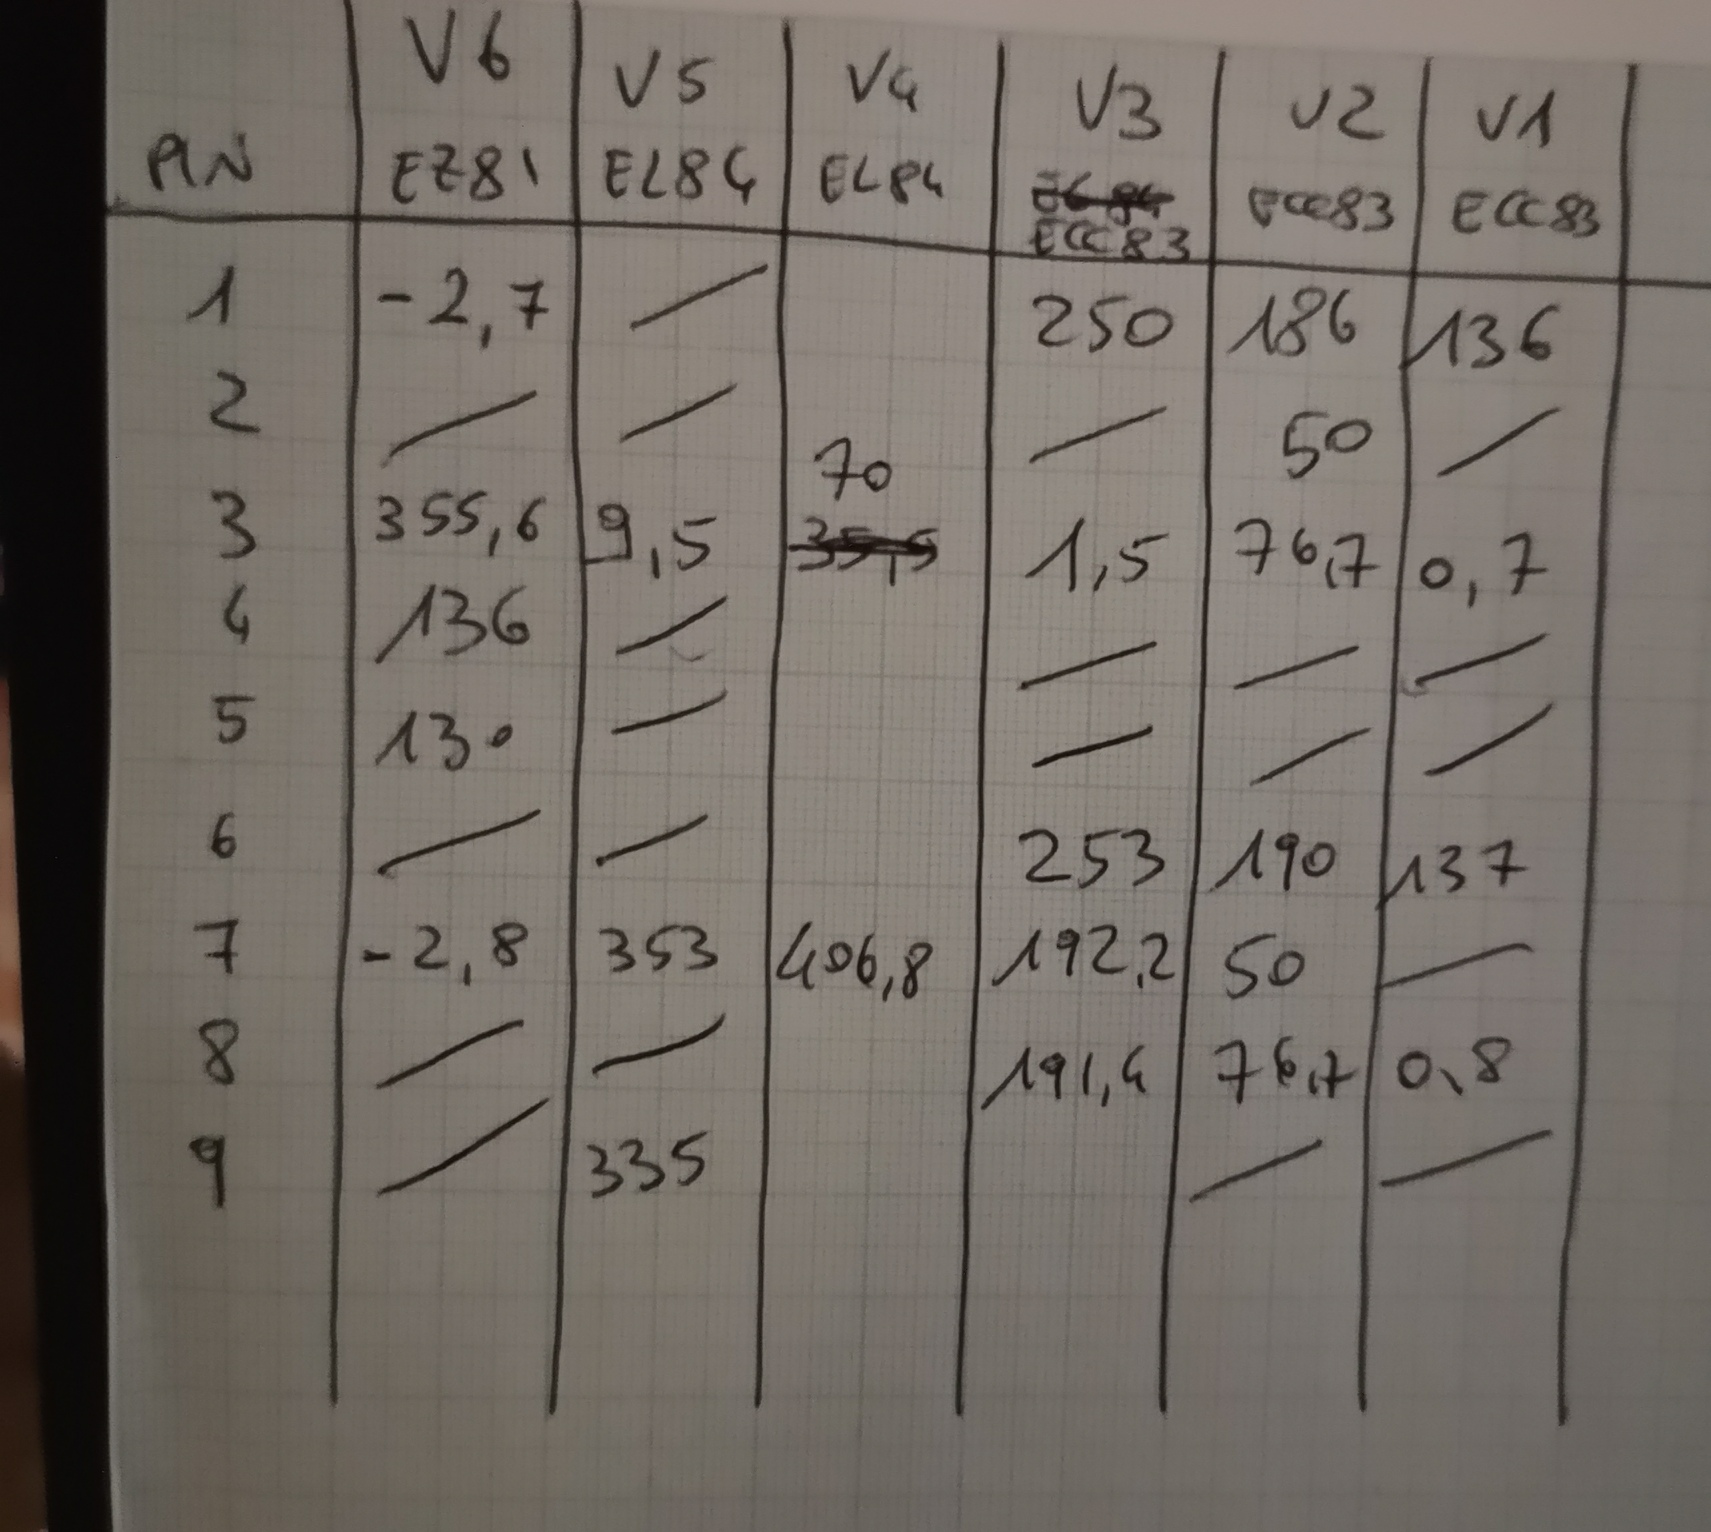 V6 V5 V4 V3 V2 V1
PIN EZ81 EL84 EL84 ECC83 ECC83 ECC83
1 -2,7 / 250 186 136
2 / / / 50 /
70
3 355,6 9,5 35,5 1,5 76,7 0,7
4 136 / / / /
5 130 / / / /
6 / / 253 190 137
7 -2,8 353 406,8 192,2 50 /
8 / / 191,4 76,7 0,8
9 / 335 / /